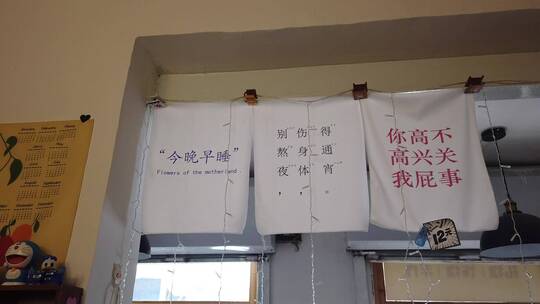 “今晚早睡”
Flowers of the motherland
别熬夜，
伤身体，
得通宵。
你高不
高兴关
我屁事
12天